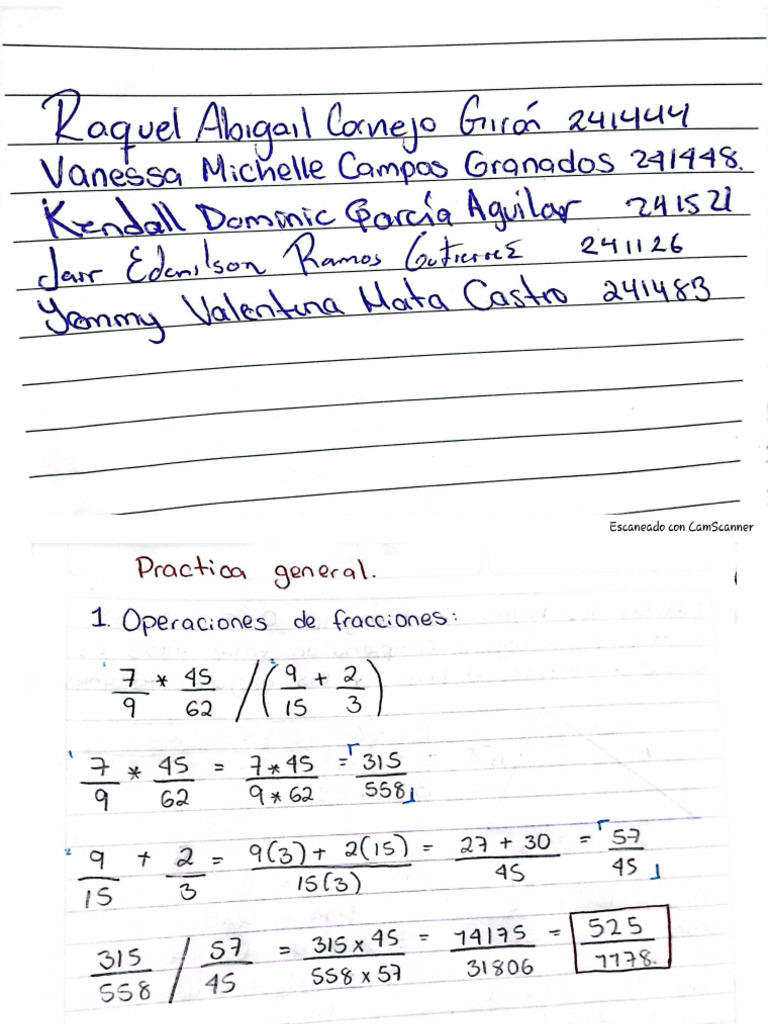 Raquel Abigail Cornejo Girón 241444
Vanessa Michelle Campos Granados 241448.
Kendall Dominic García Aguilar 241521
Jair Edenilson Ramos Gutierrez 241126
Yemmy Valentina Mata Castro 241483
Escaneado con CamScanner
Practica general.
1. Operaciones de fracciones:
1 7/9 * 45/62 / 2 (9/15 + 2/3)
1 7/9 * 45/62 = 7*45/9*62 = 315/558
2 9/15 + 2/3 = 9(3) + 2(15)/15(3) = 27 + 30/45 = 57/45
315/558 / 57/45 = 315 x 45/558 x 57 = 14175/31806 = 525/1178.